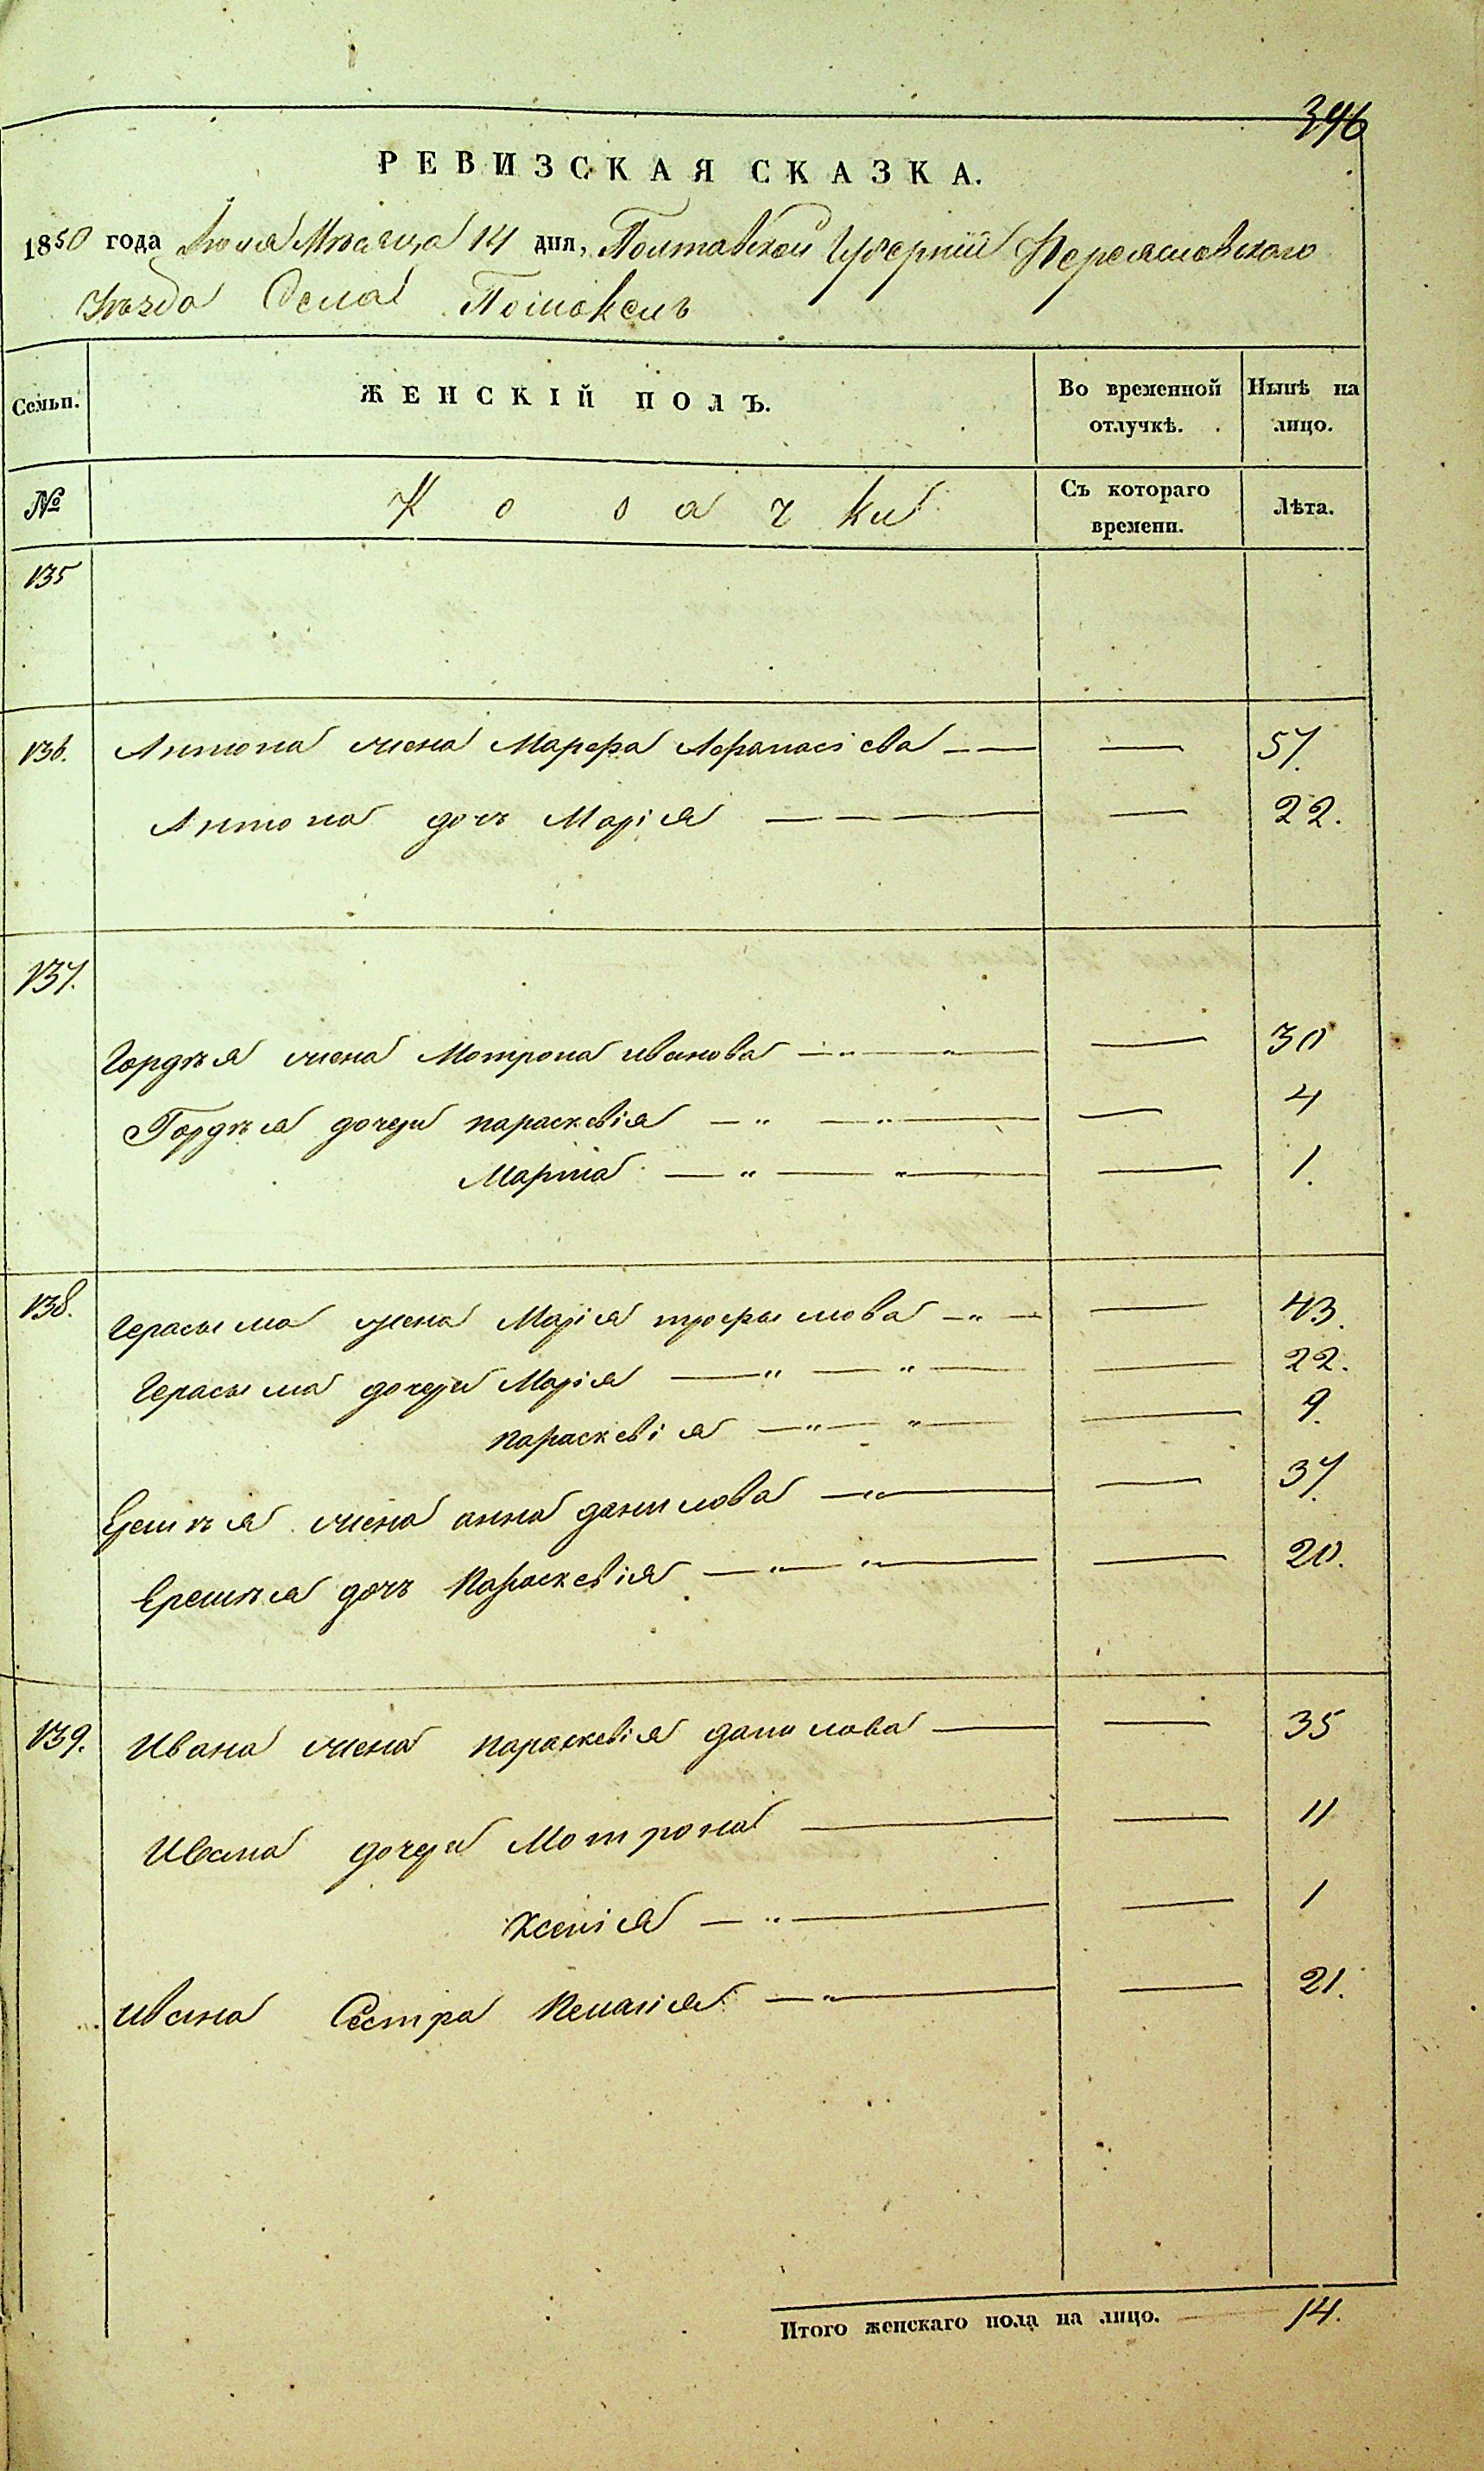 396
РЕВИЗСКАЯ СКАЗКА.
1850 года Июля Мѣсяца 14 дня, Полтавской Губерніи Переяславского
Уѣзда Села Помоклъ
Семьи. ЖЕНСКІЙ ПОЛЪ. Во временной отлучкѣ. Нынѣ на лицо.
№ Козачки Съ котораго времени. Лѣта.
135
136. Антона жена Марфа Афанасіева — — — 57.
Антона дочь Марія — — — — 22.
137.
Гордѣя жена Мотрона иванова — " — " — — 30
Гордѣя дочери параскевія — " — " — — 4
Марина — " — " — — 1.
138. Герасыма жена Марія трофымова — " — — 43.
Герасыма дочери Марія — " — " — — 22.
параскевія — " — " — — 9.
Еремѣя жена анна данилова — " — — 37.
Еремѣя дочь Параскевія — " — " — — 20.
139. Ивана жена параскевія данилова — — 35
Ивана дочери Мотрона — — 11
Ксенія — " — — 1
ивана Сестра Пелагія — " — — 21.
Итого женскаго пола на лицо. — 14.